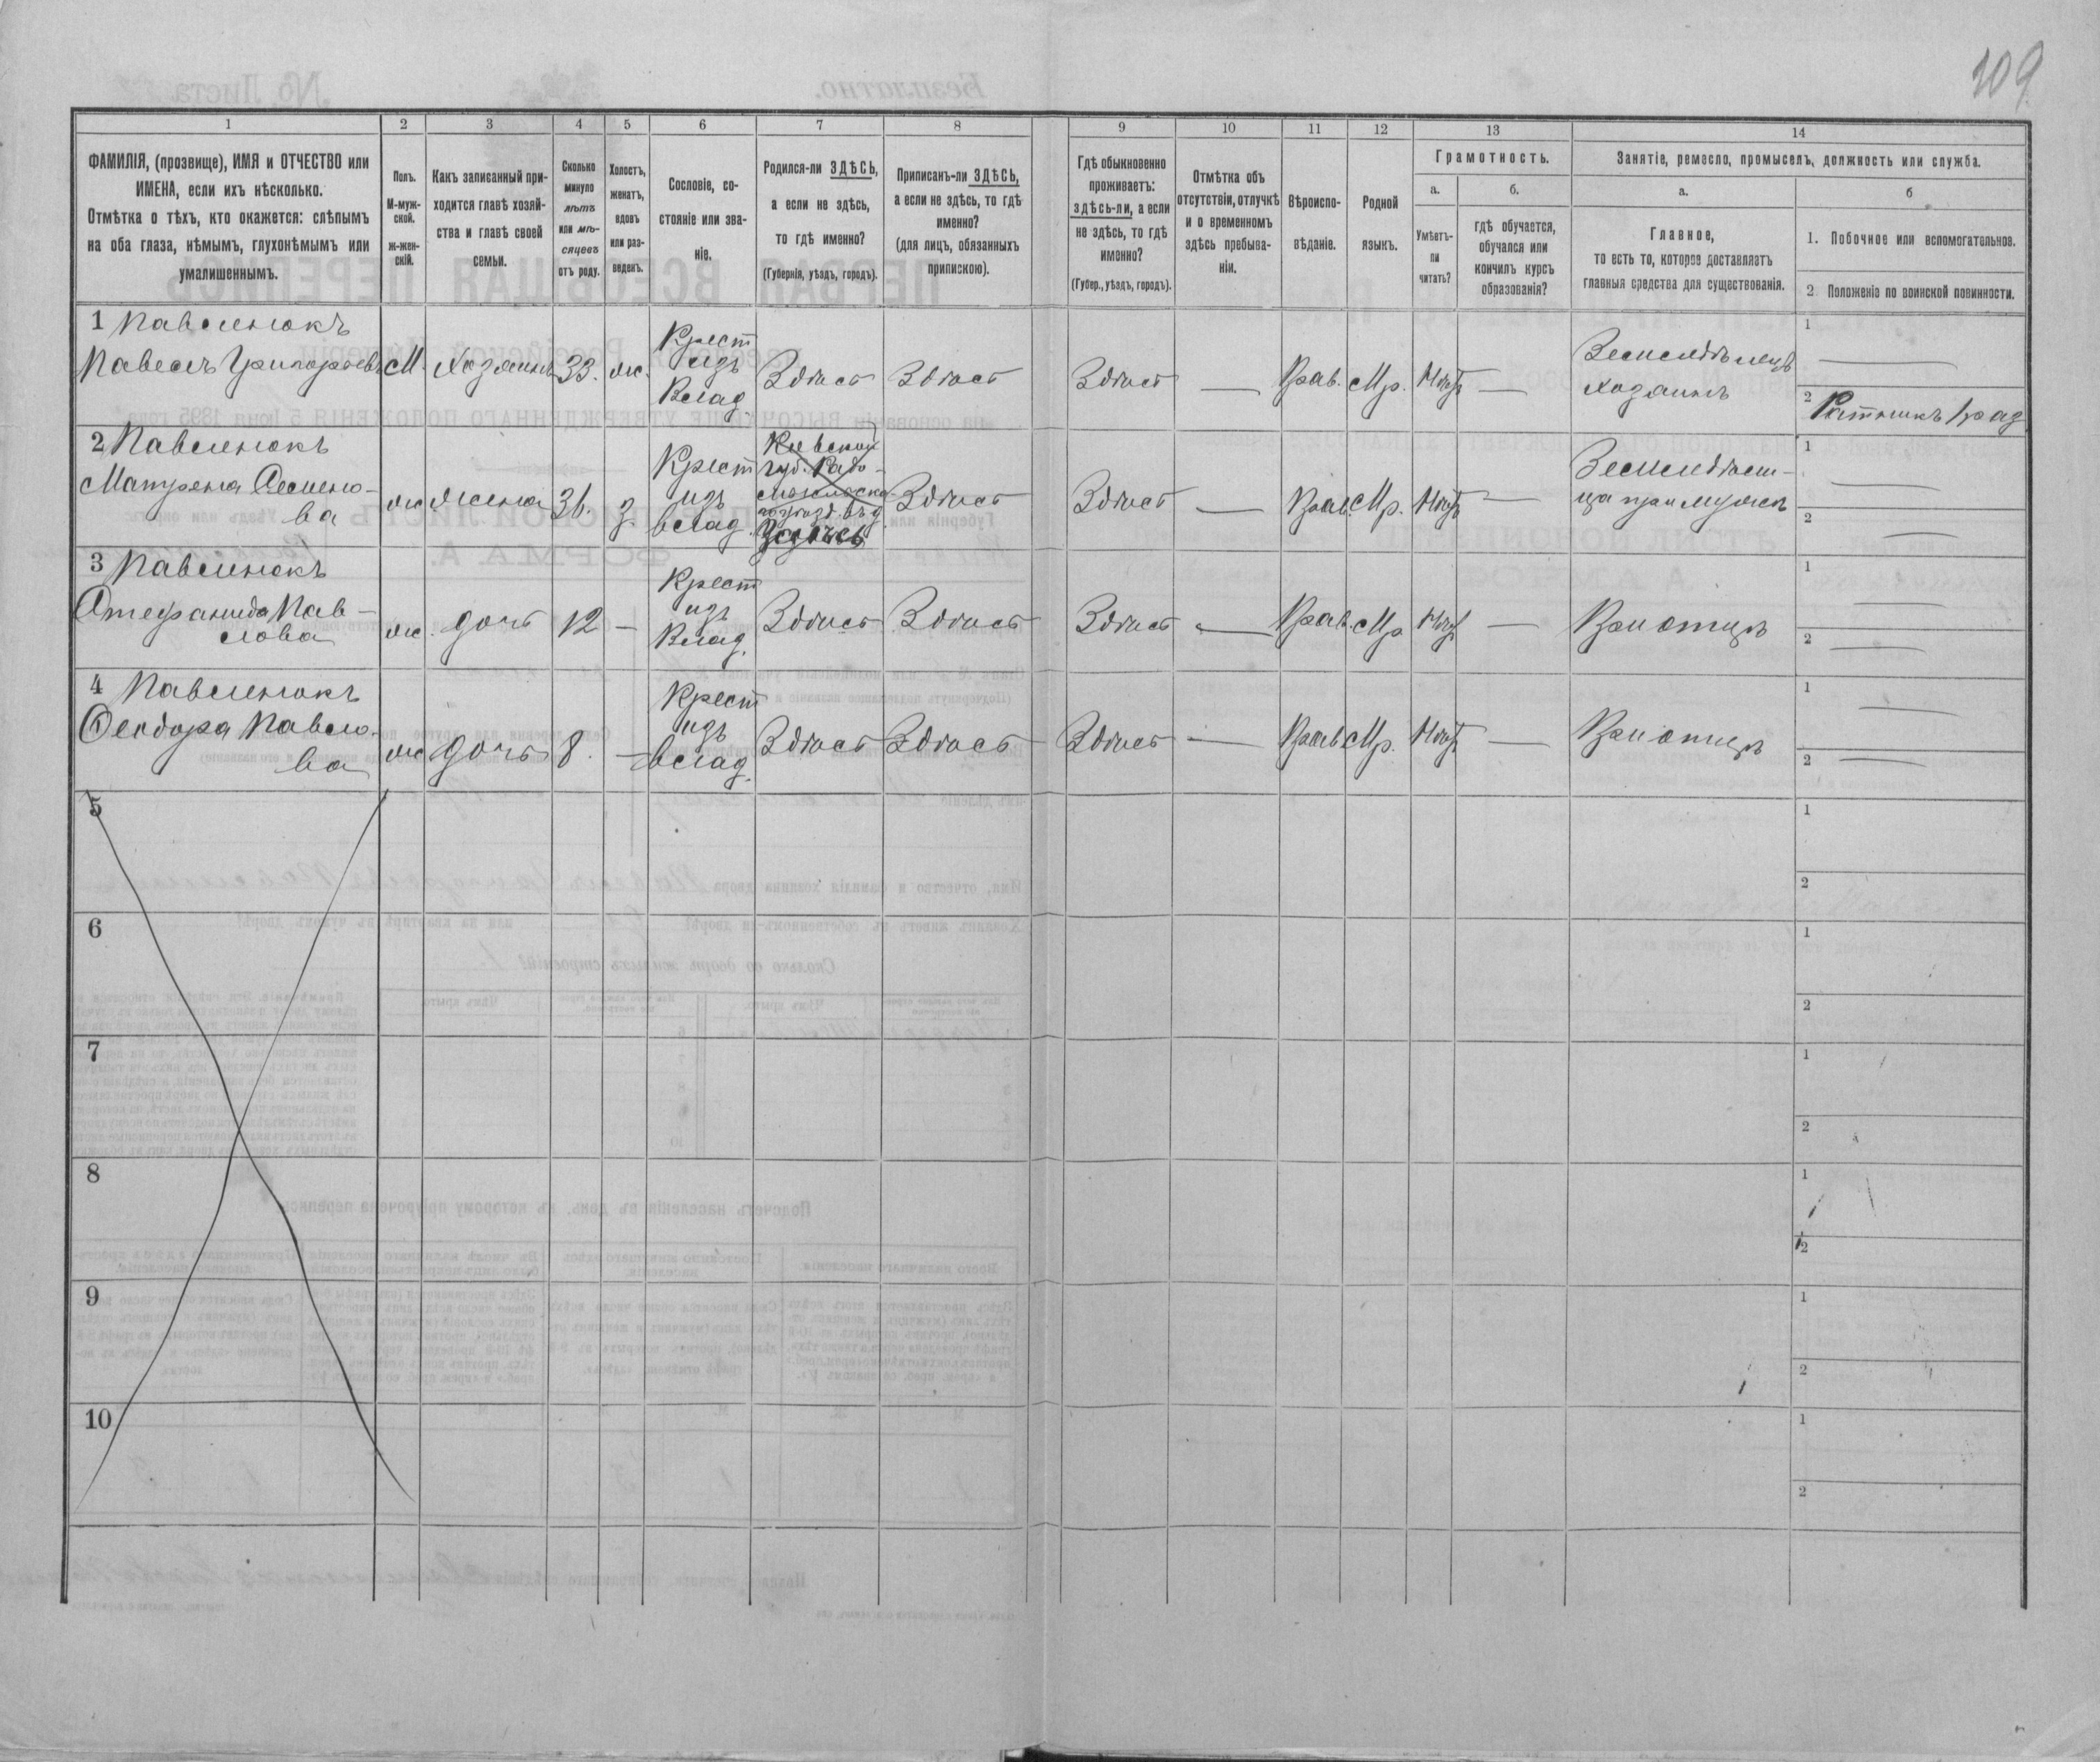 109
1
2
3
4
5
6
7
8
9
10
11
12
13
14
ФАМИЛІЯ, (прозвище), ИМЯ и ОТЧЕСТВО или
ИМЕНА, если ихъ нѣсколько.
Отмѣтка о тѣхъ, кто окажется: слѣпымъ
на оба глаза, нѣмымъ, глухонѣмымъ или
умалишеннымъ.
Полъ.
М-муж-
ской.
ж-жен-
скій.
Какъ записанный при-
ходится главѣ хозяй-
ства и главѣ своей
семьи.
Сколько
минуло
лѣтъ
или мѣ-
сяцевъ
отъ роду.
Холостъ,
женатъ,
вдовъ
или раз-
веденъ.
Сословіе, со-
стояніе или зва-
ніе.
Родился-ли ЗДѢСЬ,
а если не здѣсь,
то гдѣ именно?
(Губернія, уѣздъ, городъ).
Приписанъ-ли ЗДѢСЬ,
а если не здѣсь, то гдѣ
именно?
(для лицъ, обязанныхъ
припискою).
Гдѣ обыкновенно
проживаетъ:
здѣсь-ли, а если
не здѣсь, то гдѣ
именно?
(Губер., уѣздъ, городъ).
Отмѣтка объ
отсутствіи, отлучкѣ
и о временномъ
здѣсь пребыва-
ніи.
Вѣроиспо-
вѣданіе.
Родной
языкъ.
Грамотность.
а.
Умѣетъ-
ли
читать?
б.
гдѣ обучается,
обучался или
кончилъ курсъ
образованія?
Занятіе, ремесло, промыселъ, должность или служба.
а.
Главное,
то есть то, которое доставляетъ
главныя средства для существованія.
б
1. Побочное или вспомогательное.
2 Положеніе по воинской повинности.
1 Павленюкъ
Павелъ Григорьевъ
М.
Хозяинъ
33.
ж.
Крест
изъ
Влад.
Здѣсь
Здѣсь
Здѣсь
—
Прав.
Мр.
Нѣтъ
—
Земледѣлецъ
хозяинъ
1 —
2 Ратникъ 1 раз
2 Павленюкъ
Матрена Семено-
ва
ж
жена
31.
з.
Крест
изъ
влад.
Кіевской
губ. Радо-
мысльска-
го уѣзд.
Здѣсь
Здѣсь
Здѣсь
—
Прав.
Мр.
Нѣтъ
—
Земледѣли-
ца при мужѣ
1 —
2 —
3 Павленюкъ
Стефанида Пав-
лова
ж.
дочь
12
—
Крест
изъ
Влад.
Здѣсь
Здѣсь
Здѣсь
—
Прав.
Мр
Нѣтъ
—
При отцѣ
1 —
2 —
4 Павленюкъ
Ѳеодора Павло-
ва
ж
дочь
8.
—
Крест
изъ
влад.
Здѣсь
Здѣсь
Здѣсь
—
Прав.
Мр.
Нѣтъ
—
При отцѣ
1 —
2 —
5
1
2
6
1
2
7
1
2
8
1
2
9
1
2
10
1
2